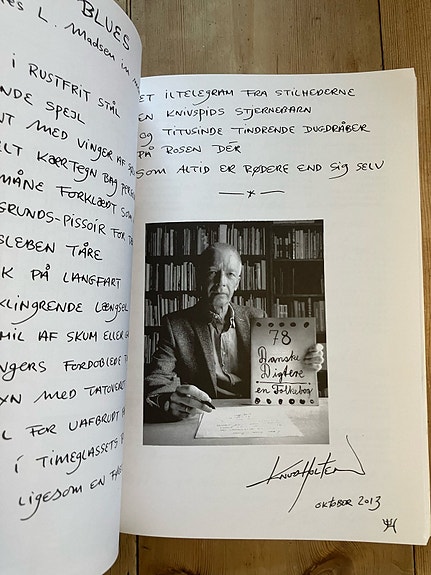 BLUES
L. Madsen in
I RUSTFRIT STÅL
NDE SPEJL
NT MED VINGER AF
ELT KÆRTEGN BAG
MÅNE FORKLÆDT SOM
GRUNDS-PISSOIR FOR
SLEBEN TÅRE
K PÅ LANGFART
KLINGRENDE LÆNGSEL
MIL AF SKUM ELLER
NGERS FORDOBLEDE
YN MED TATOVERET
L FOR UAFBRUDT
I TIMEGLASSETS
LIGESOM EN
ET ILTELEGRAM FRA STILHEDERNE
EN KNIVSPIDS STJERNEBARN
OG TITUSINDE TINDRENDE DUGDRÅBER
PÅ ROSEN DÉR
SOM ALTID ER RØDERE END SIG SELV
78
Danske
Digtere
en Folkebog
KNUD HOLTEN
OKTOBER 2013